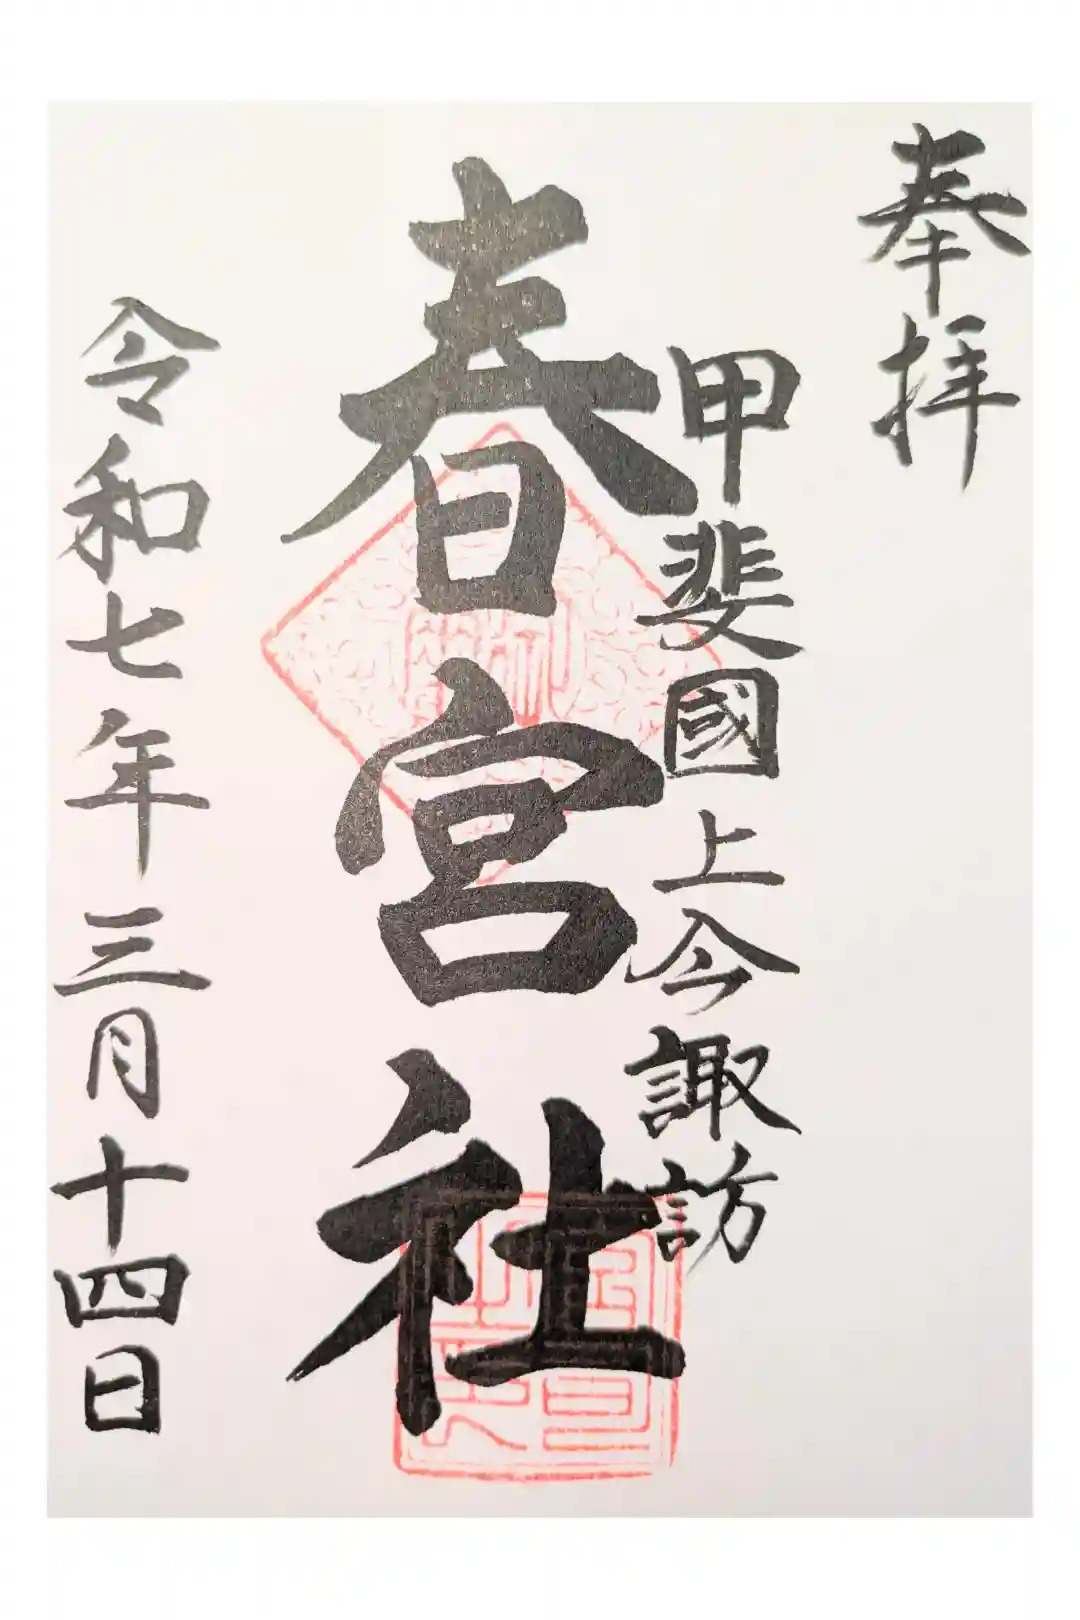 奉拝
甲斐國上今諏訪
春日宮社
令和七年三月十四日